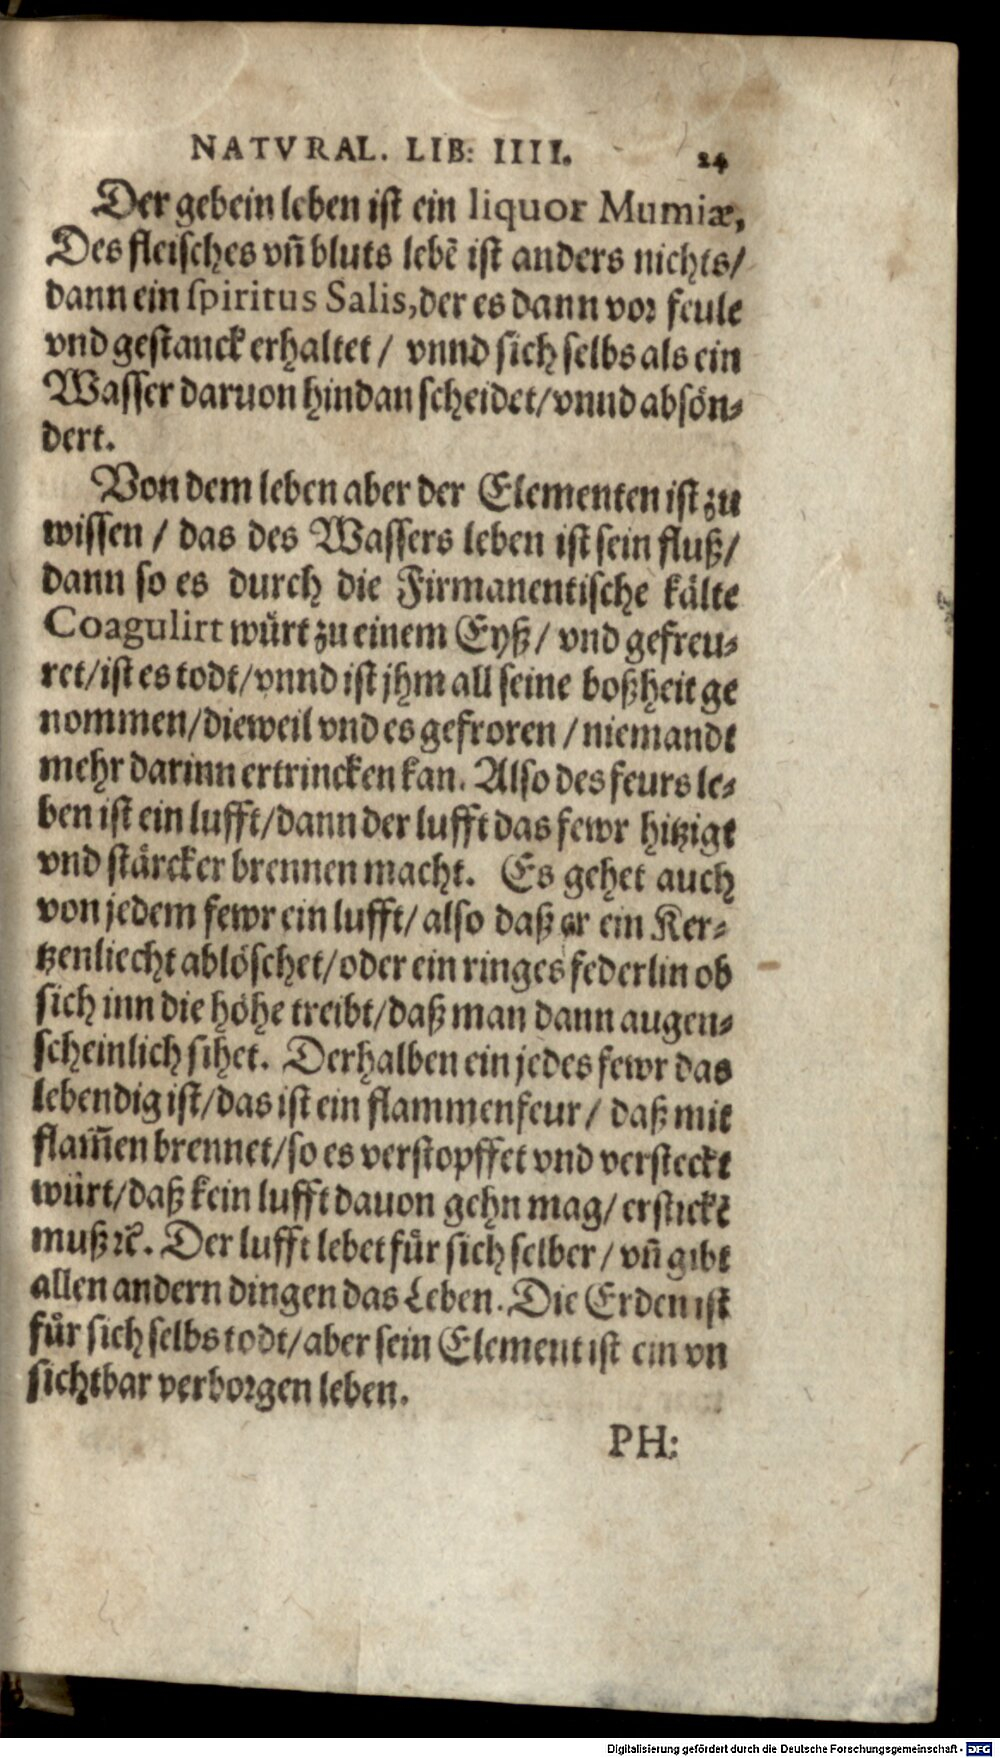 NATVRAL. LIB: IIII. 24
Der gebein leben ist ein liquor Mumiæ,
Des fleisches vñ bluts lebē ist anders nichts/
dann ein spiritus Salis, der es dann vor feule
vnd gestanck erhaltet / vnnd sich selbs als ein
Wasser daruon hindan scheidet/vnnd absön-
dert.
Von dem leben aber der Elementen ist zu
wissen / das des Wassers leben ist sein fluß/
dann so es durch die Firmanentische kälte
Coagulirt würt zu einem Eyß/ vnd gefreu-
ret/ist es todt/vnnd ist jhm all seine boßheit ge
nommen/dieweil vnd es gefroren / niemandt
mehr darinn ertrincken kan. Also des feurs le-
ben ist ein lufft/dann der lufft das fewr hitzigt
vnd stärcker brennen macht. Es gehet auch
von jedem fewr ein lufft/ also daß er ein Ker-
tzenliecht ablöschet/oder ein ringes federlin ob
sich inn die höhe treibt/daß man dann augen-
scheinlich sihet. Derhalben ein jedes fewr das
lebendig ist/das ist ein flammenfeur/ daß mit
flam̄en brennet/so es verstopffet vnd versteckt
würt/daß kein lufft dauon gehn mag/ erstickē
muß ꝛc̄. Der lufft lebet für sich selber/ vñ gibt
allen andern dingen das Leben. Die Erden ist
für sich selbs todt/aber sein Element ist ein vn
sichtbar verborgen leben.
PH:
Digitalisierung gefördert durch die Deutsche Forschungsgemeinschaft - DFG